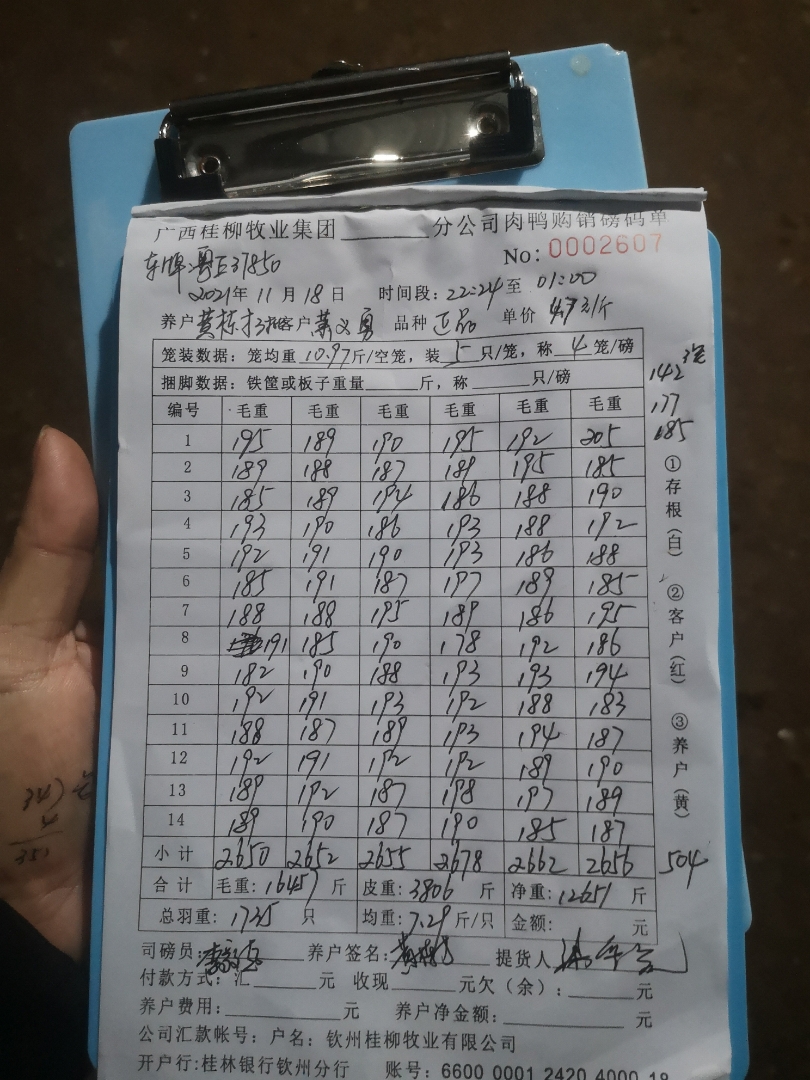 广西桂柳牧业集团______分公司肉鸭购销磅码单
车牌:粤E37850 No: 0002607
2021年 11 月 18 日 时间段: 22:24 至 01:00
养户 黄栋 客户 叶义勇 品种 正品 单价 4.7元/斤
笼装数据: 笼均重 10.97 斤/空笼, 装 5 只/笼, 称 4 笼/磅
捆脚数据: 铁筐或板子重量____斤, 称____只/磅
142 3笼
177
185
编号 毛重 毛重 毛重 毛重 毛重 毛重
1 195 189 190 195 192 205
2 189 188 187 189 195 185
3 185 189 194 186 188 190
4 193 190 186 193 188 192
5 192 191 190 193 186 188
6 185 191 187 197 189 185
7 188 188 195 189 186 195
8 191 185 190 178 192 186
9 182 190 188 193 193 194
10 192 191 193 192 188 183
11 188 187 189 193 194 187
12 192 191 192 192 189 190
13 189 192 187 198 197 189
14 189 190 187 190 185 187
小计 2650 2652 2655 2678 2662 2656 504
合计 毛重: 16457 斤 皮重: 3806 斤 净重: 12651 斤
总羽重: 1735 只 均重: 7.29 斤/只 金额: 元
司磅员: 养户签名: 提货人
付款方式: 汇____元 收现____元欠(余): ____元
养户费用: ____元 养户净金额: ____元
公司汇款帐号: 户名: 钦州桂柳牧业有限公司
开户行:桂林银行钦州分行 账号: 6600 0001 2420 4000 18
①存根(白) ②客户(红) ③养户(黄)
347
4
351